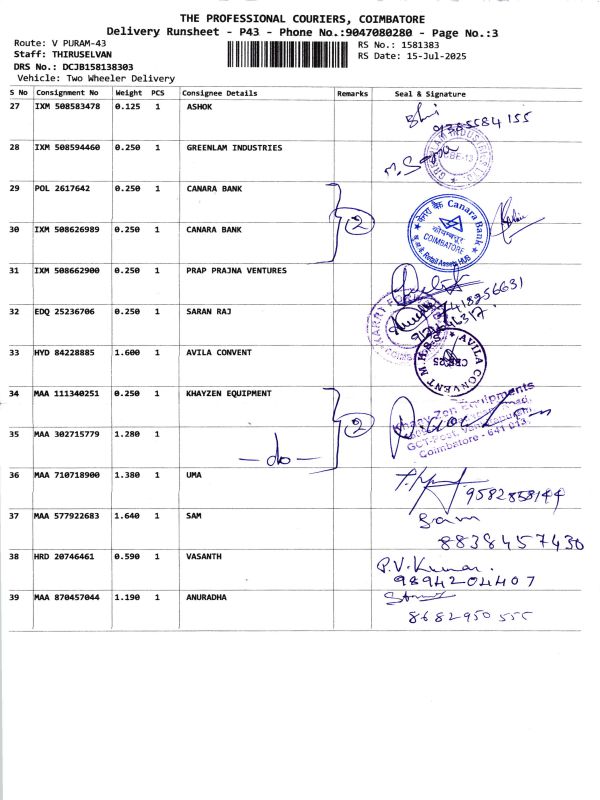 THE PROFESSIONAL COURIERS, COIMBATORE
Delivery Runsheet - P43 - Phone No.:9047080280 - Page No.:3
Route: V PURAM-43
RS No.: 1581383
Staff: THIRUSELVAN
RS Date: 15-Jul-2025
DRS No.: DCJB158138303
Vehicle: Two Wheeler Delivery
S No Consignment No Weight PCS Consignee Details Remarks Seal & Signature
27 IXM 508583478 0.125 1 ASHOK
9385584155
28 IXM 508594460 0.250 1 GREENLAM INDUSTRIES
29 POL 2617642 0.250 1 CANARA BANK
2
केनरा बैंक Canara Bank
COIMBATORE
Retail Assets HUB
30 IXM 508626989 0.250 1 CANARA BANK
31 IXM 508662900 0.250 1 PRAP PRAJNA VENTURES
32 EDQ 25236706 0.250 1 SARAN RAJ
33 HYD 84228885 1.600 1 AVILA CONVENT
AVILA CONVENT M.H.S.S
CBE-25
34 MAA 111340251 0.250 1 KHAYZEN EQUIPMENT
2
Khaay Zen Equipments
GCT-Post,
Coimbatore - 641 013.
35 MAA 302715779 1.280 1
— do —
36 MAA 710718900 1.380 1 UMA
9582858144
37 MAA 577922683 1.640 1 SAM
Sam
8838457430
38 HRD 20746461 0.590 1 VASANTH
P.V.Kumar.
9894204407
39 MAA 870457044 1.190 1 ANURADHA
8682950555